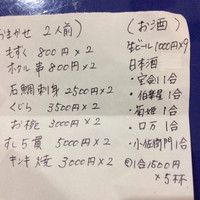 おまかせ 2人前)
もずく 800円×2
ホタル串 800円×2
石鯛刺身 2500円×2
くじら 3500円×2
お椀 3000円×2
すし5貫 5000円×2
キンキ焼 3000円×2
(お酒)
生ビール1000円×9
日本酒
・宝剣1合
・伯楽星1合
・菊姫1合
・ロ万1合
・小左衛門1合
@1合1500円
×5杯